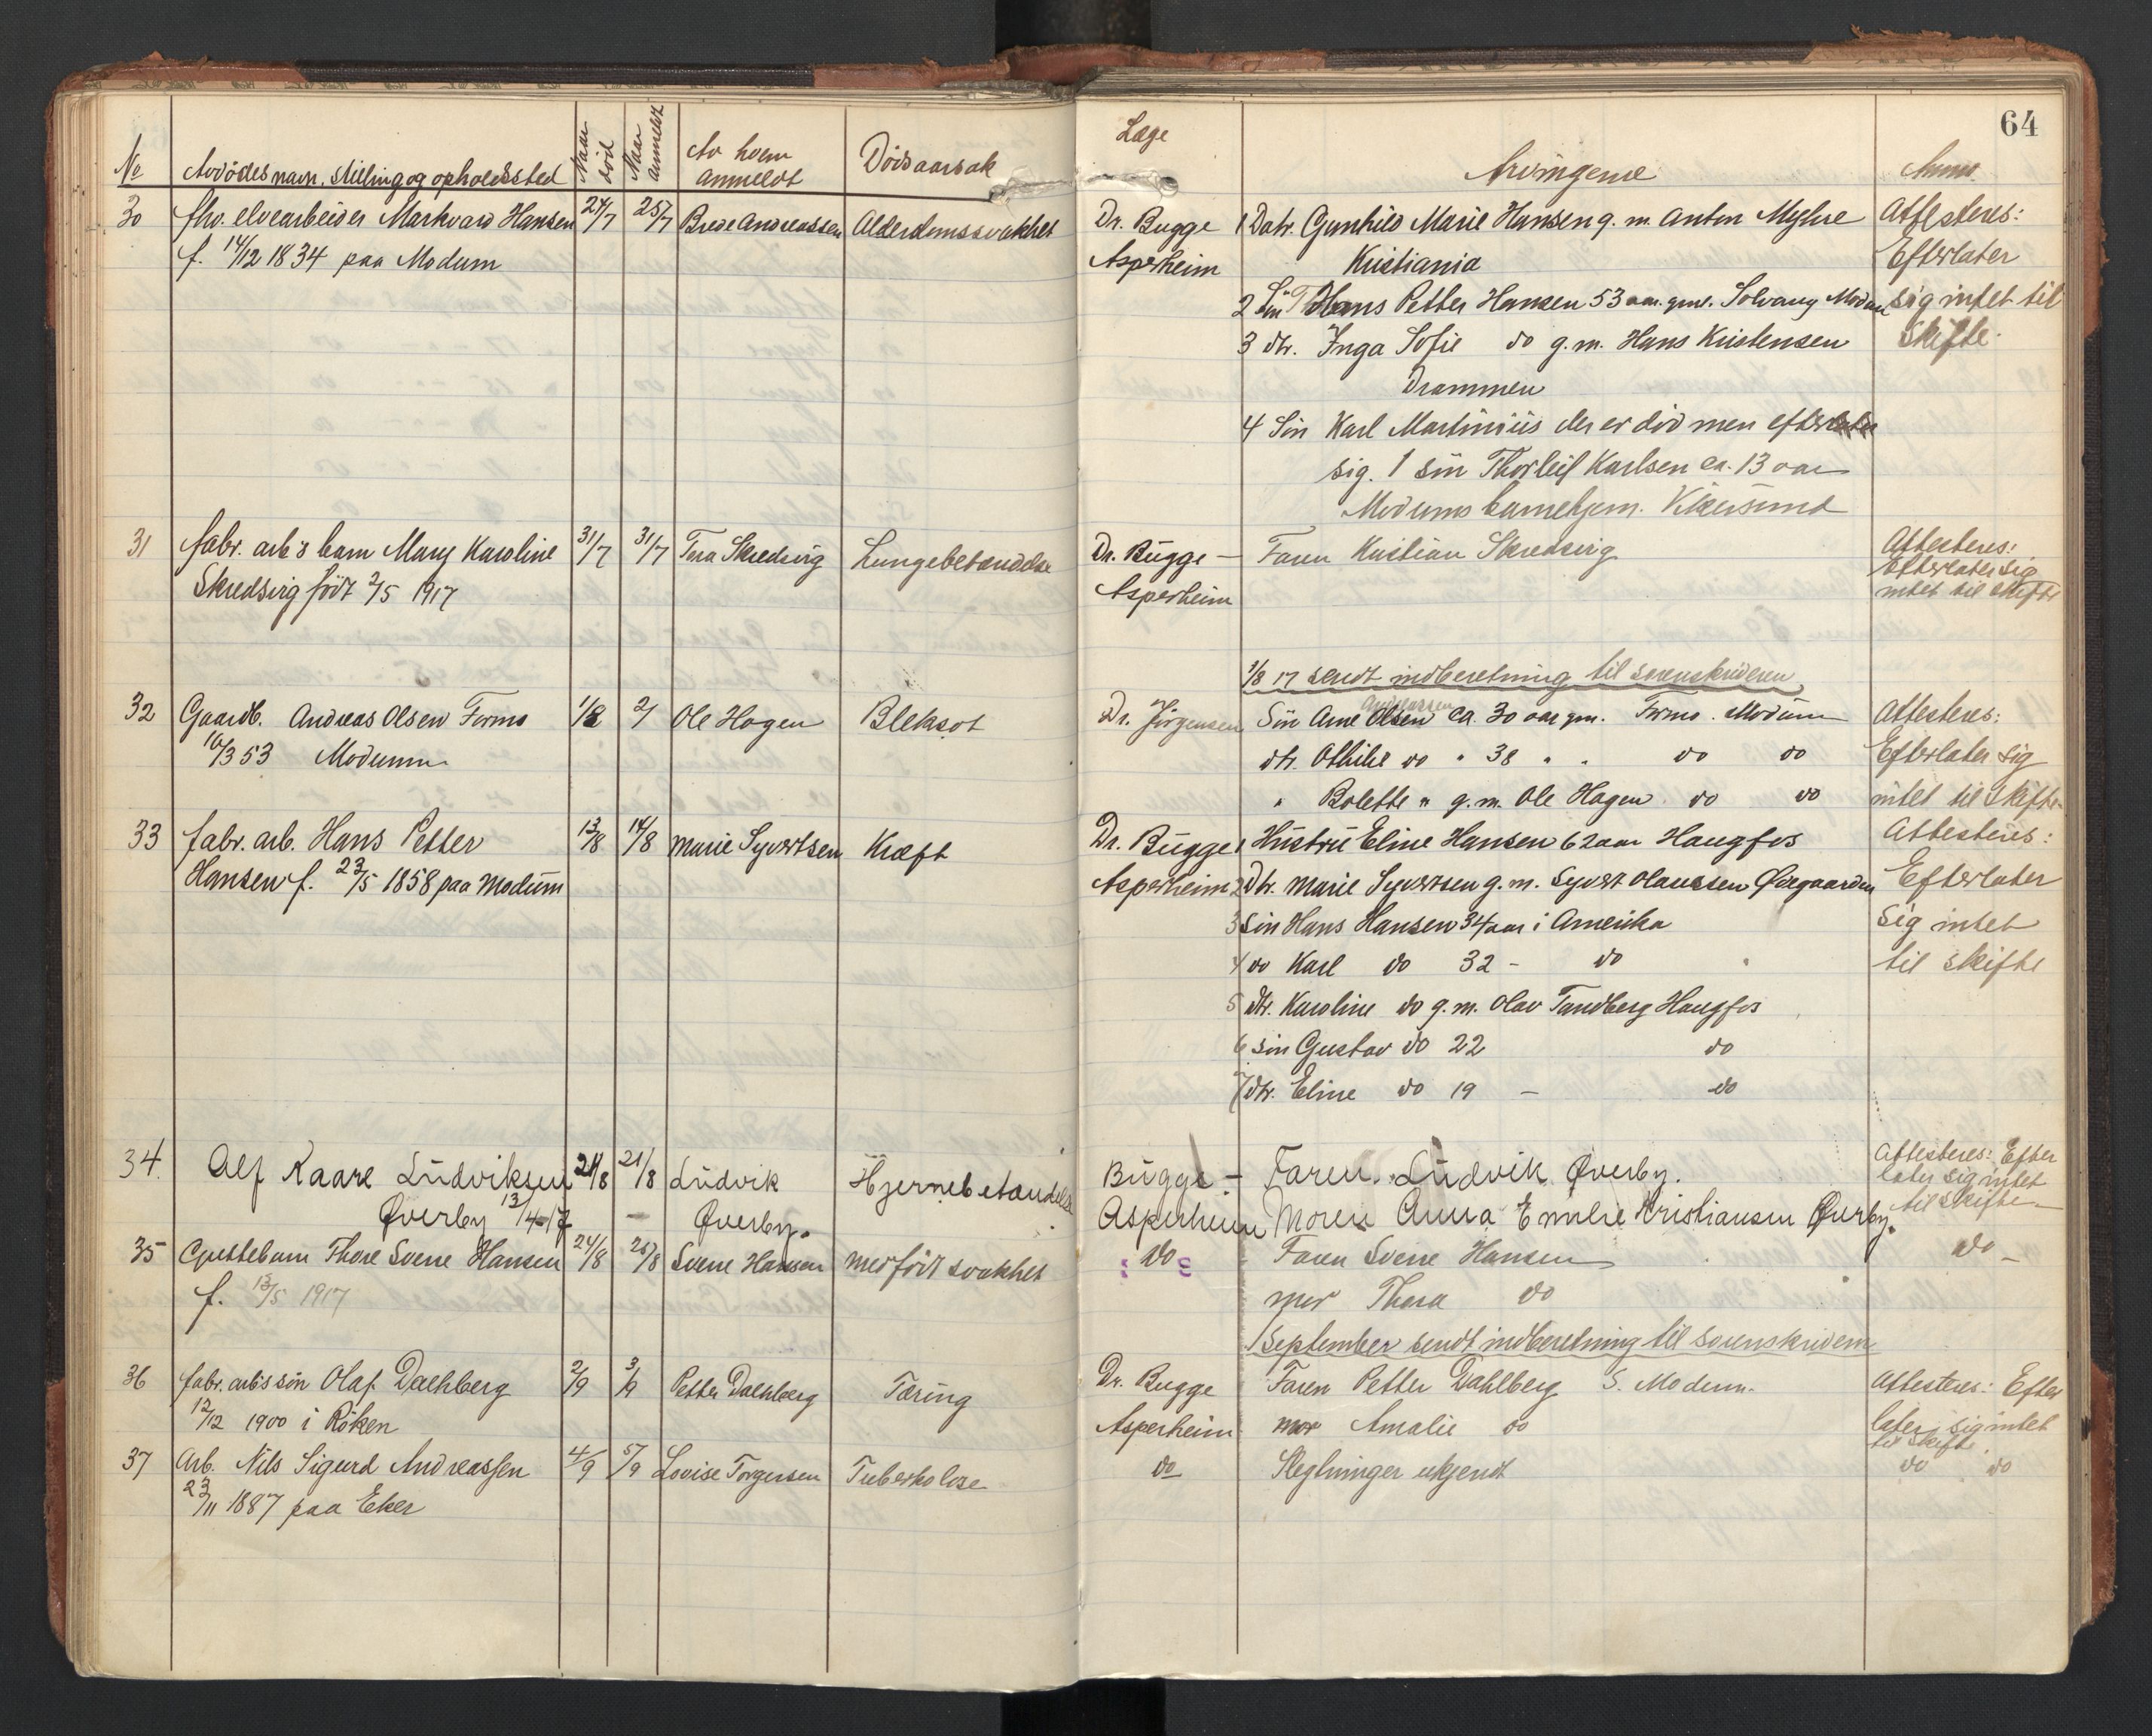 64
No
Avdödes navn, stilling og opholdssted
Naar död
Naar anmeldt
Av hvem anmeldt
Dödsaarsak
Læge
Arvingene
Anm.
30 fhv. elvearbeider Markvard Hansen 24/7 25/7 Brede Andreassen Alderdomssvakhet Dr. Bugge 1 Datr. Gunhild Marie Hansen g. m. Anton Myhre Attesteres:
f. 14/12 1834 paa Modum Asperheim Kristiania Efterlater
2 Sön Hans Petter Hansen 53 aar. gml. Solvang Modum sig intet til
3 dtr. Inga Sofie do g. m. Hans Kristensen Skifte.
Drammen
4 Sön Karl Martinius der er död men efterlater
sig. 1 sön Thorleif Karlsen ca. 13 aar
Modums barnehjem. Vikersund
31 fabr. arb's barn Mary Karoline 31/7 31/7 Tea Skredsvig Lungebetændelse Dr. Bugge — Faren Kristian Skredsvig Attesteres:
Skredsvig födt 2/5 1917 Asperheim Efterlater sig
intet til skifte
1/8 17 sendt indberetning til sorenskriveren
Andreassen
32 Gaardb. Andreas Olsen Formo 1/8 2/ Ole Hagen Bleksot Dr. Jörgensen Sön Arne Olsen ca. 30 aar gm. Formo. Modum Attesteres:
10/3 53 Modum dtr. Othilie do " 38 " " do do Efterlater sig
" Bolette " g. m. Ole Hagen do do intet til skifte
33 fabr. arb. Hans Petter 13/8 14/8 Marie Syvertsen Kræft Dr. Bugge 1 Hustru Eline Hansen 62 aar Haugfos Attesteres:
Hansen f. 23/5 1858 paa Modum Asperheim 2 Dtr. Marie Syvertsen g. m. Syvert Olaussen Öxegaarden Efterlater
3 Sön Hans Hansen 34 aar i Amerika Sig intet
4 do Karl do 32 - do til skifte
5 dtr. Karoline do g. m. Olav Tandberg Haugfos
6 sön Gustav do 22 do
7 dtr. Eline do 19 — do
34. Alf Kaare Ludviksen 21/8 21/8 Ludvik Hjernebetændelse Bugge — Faren. Ludvik Øverby. Attesteres: Efter
Øverby 13/4-17 — Øverby. Asperheim Moren Anna Emilie Kristiansen Øverby. later sig intet
til skifte
35 Gruttebarn Thore Sverre Hansen 24/8 25/8 Sverre Hansen medfödt svakhet do Faren Sverre Hansen do —
f. 13/5 1917 mor Thora do
1 September sendt indberetning til sorenskriveren
36 fabr. arb's sön Olaf Dahlberg 2/9 3/9 Petter Dahlberg Tæring Dr. Bugge Faren Petter Dahlberg S. Modum. Attesteres: Efter
12/12 1900 i Röken Asperheim mor Amalie do later sig intet
til skifte.
37 Arb. Nils Sigurd Andreassen 4/9 5/9 Lovise Torgersen Tuberkolose do Slegtninger ukjendt do do
23/11 1887 paa Eker